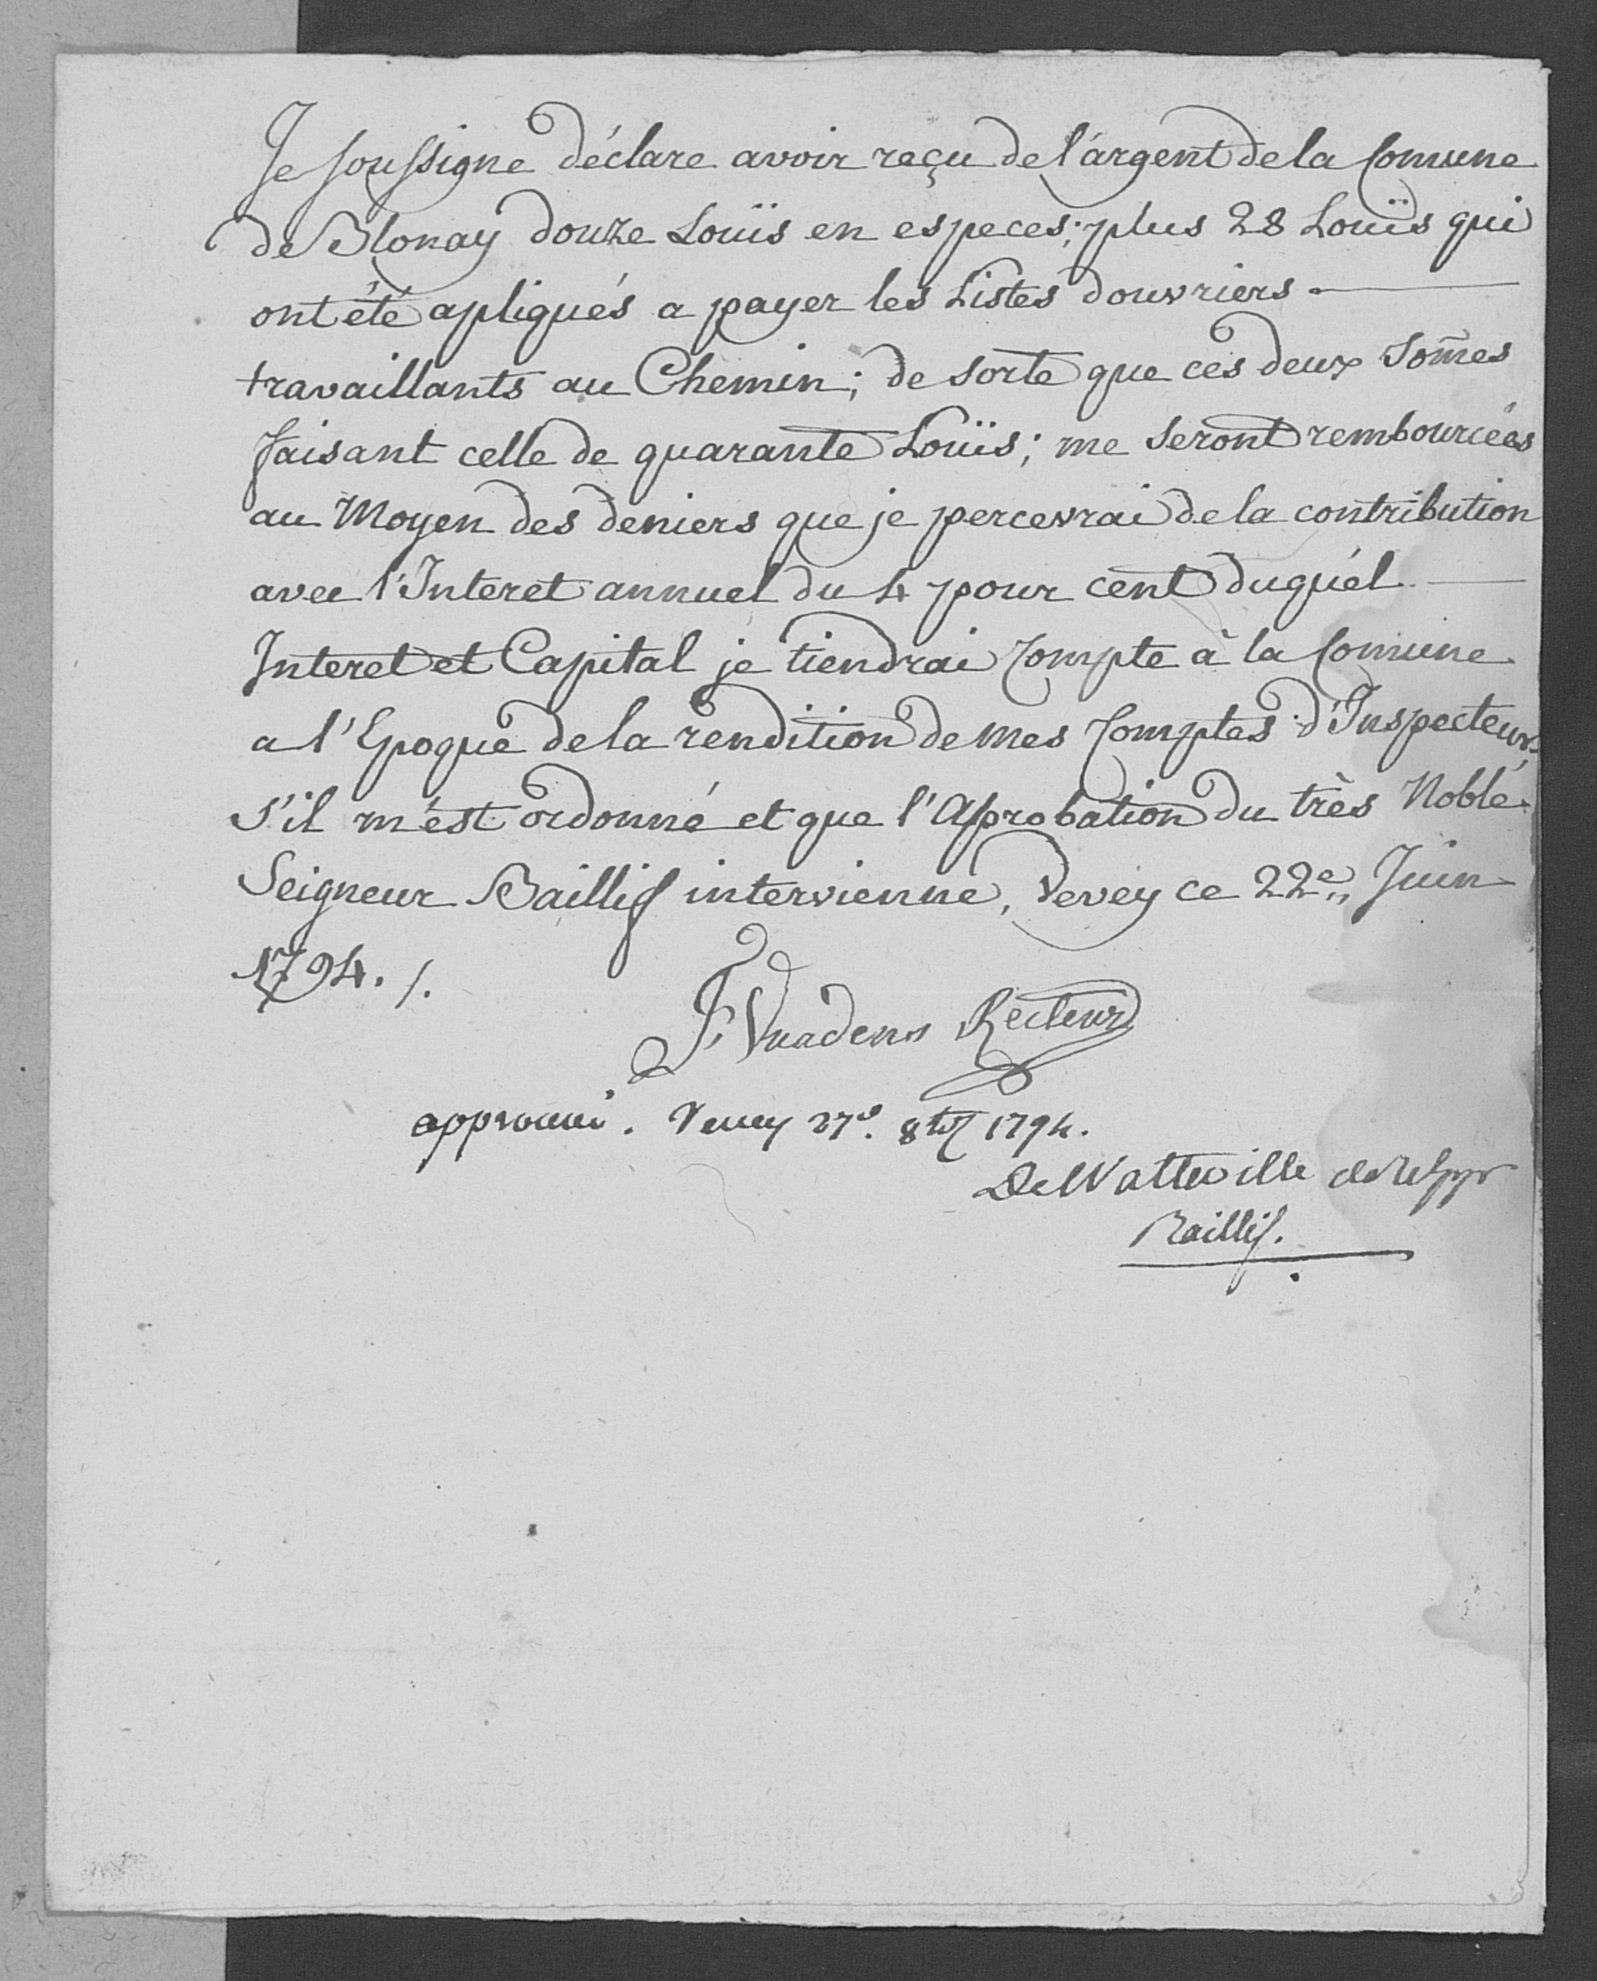 Je soussigne déclare avoir reçu de l'argent de la Comune
de Blonay douze Louïs en especes; plus 28 Louïs qui
ont été apliqués a payer les Listes d'ouvriers
travaillants au Chemin; de sorte que ces deux Som̃es
faisant celle de quarante Louïs; me Seront rembourcées
au Moyen des deniers que je percevrai de la contribution
avec l'Interet annuel du 4 pour cent duquél
Interet et Capital je tiendrai Compte à la Comune
a l'Epoque de la rendition de mes Comptes d'Inspecteur,
S'il m'est ordonné et que l'Aprobation du très Noble
Seigneur Baillif intervienne, Vevey ce 22e Juin
1794. /.
F Vuadens Recteur
approuvé. Vevey 27e. 8bre 1794.
De Watteville
Baillif.